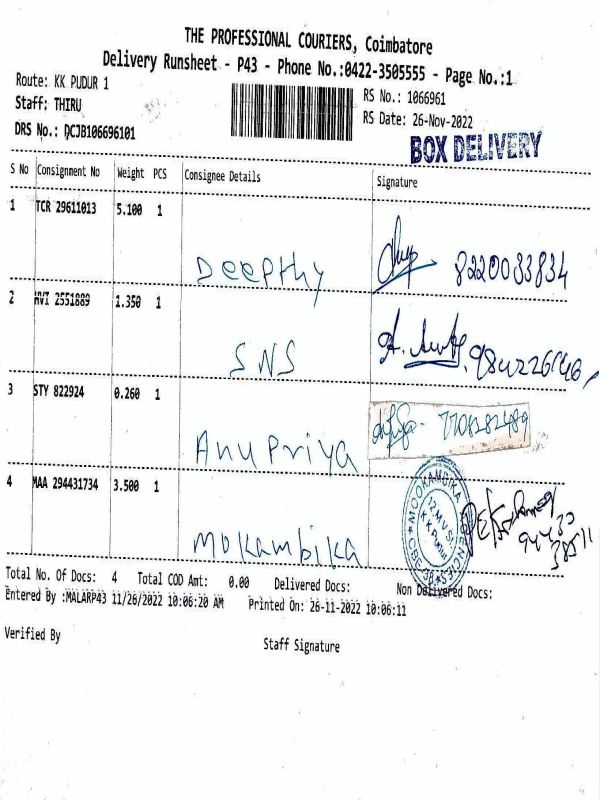 THE PROFESSIONAL COURIERS, Coimbatore
Delivery Runsheet - P43 - Phone No.:0422-3505555 - Page No.:1
Route: KK PUDUR 1
RS No.: 1066961
Staff: THIRU
RS Date: 26-Nov-2022
DRS No.: DCJB106696101
BOX DELIVERY
S No Consignment No Weight PCS Consignee Details Signature
1 TCR 29611013 5.100 1
Deepthy 8220033834
2 AVI 2551889 1.350 1
SNS
3 STY 822924 0.260 1
7708282489
Anupriya
4 MAA 294431734 3.500 1
MOOKAMBIKA AGENCIES
Mokambika
Total No. Of Docs: 4 Total COD Amt: 0.00 Delivered Docs: Non Delivered Docs:
Entered By :MALARP43 11/26/2022 10:06:20 AM Printed On: 26-11-2022 10:06:11
Verified By
Staff Signature